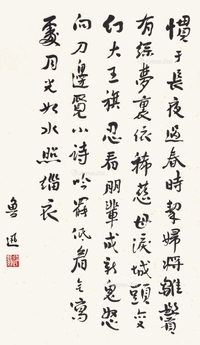 慣于長夜過春時挈婦將雛鬢
有絲夢裏依稀慈母淚城頭變
幻大王旗忍看朋輩成新鬼怒
向刀邊覓小詩吟罷低眉無寫
處月光如水照緇衣
魯迅